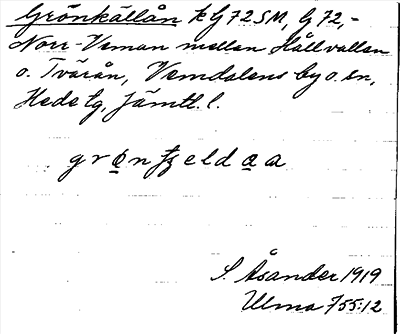 Grönkällån k G72SM, G72,-
Norr-Veman mellan Hållvallen
o. Tvärån, Vemdalens by o. sn,
Hede tg, Jämtl. l.
grøn ꞓeldaa
S. Åsander 1919
Ulma 755:12